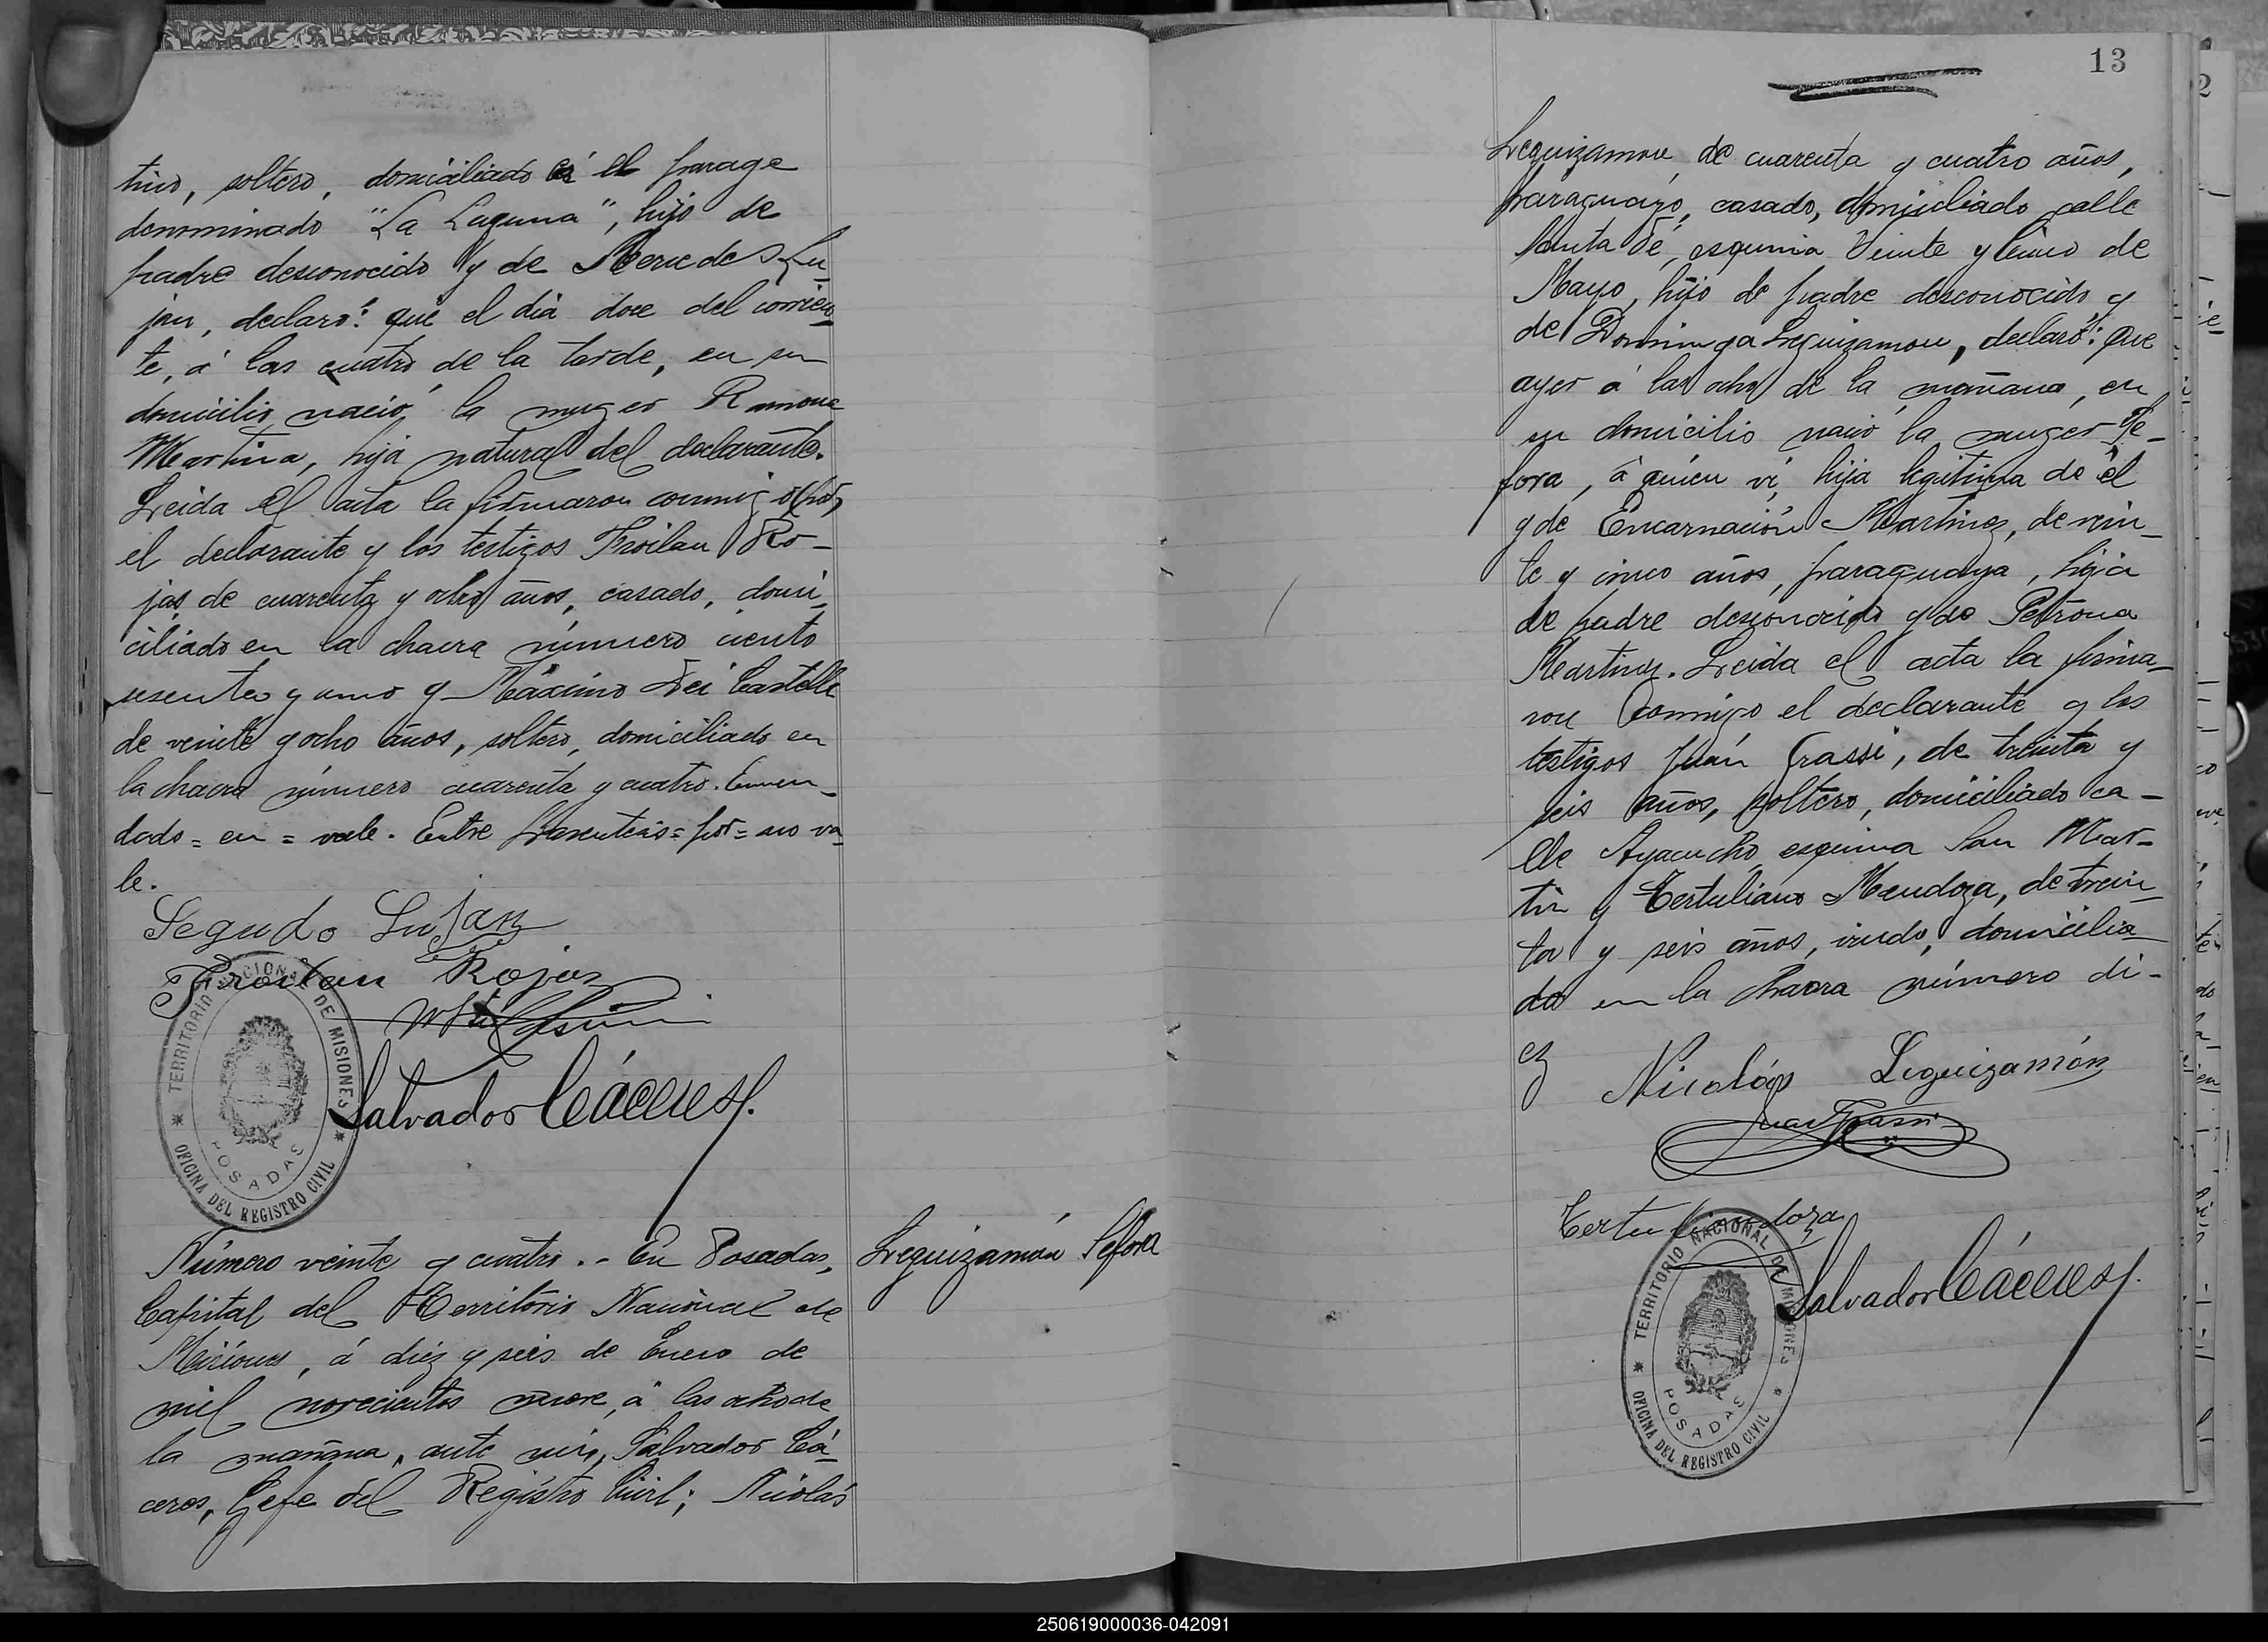 tino, soltero, domiciliado en el parage
denominado "La Laguna", hijo de
padre desconocido y de Mercedes Lu-
jan, declaró: que el dia doce del corrien-
te, á las cuatro de la tarde, en su
domicilio nació la muger Ramona
Martina, hija natural del declarante.
Leida el acta la firmaron conmigo (por)
el declarante y los testigos Froilan Ro-
jas, de cuarenta y ocho años, casado, domi-
ciliado en la chacra número ciento
sesenta y uno y Máximo Lei Castelle
de veinte y ocho años, soltero, domiciliado en
la chacra número cuarenta y cuatro. Enmen-
dado = en = vale. Entre parentesis = por = no va-
le.
Segudo Lujan
Froilan Rojas
Salvador Cáceres
TERRITORIO NACIONAL DE MISIONES
POSADAS
OFICINA DEL REGISTRO CIVIL
Número veinte y cuatro .- En Posadas,
Capital del Territorio Nacional de
Misiones, á diez y seis de Enero de
mil novecientos nueve, á las ocho de
la mañana, ante mi, Salvador Cá-
ceres, Gefe del Registro Civil; Nicolás
Leguizamón Sefora
13
Leguizamon, de cuarenta y cuatro años,
paraguayo, casado, domiciliado calle
Santa Fé, esquina Veinte y Cinco de
Mayo, hijo de padre desconocido y
de Dominga Leguizamon, declaró: que
ayer á las ocho de la mañana, en
su domicilio nació la muger Se-
fora, á quien vi, hija legitima de él
y de Encarnación Martinez, de vein-
te y cinco años, paraguaya, hija
de padre desconocido y de Petrona
Martinez. Leida el acta la firma-
ron conmigo el declarante y los
testigos Juán Grassi, de treinta y
seis años, soltero, domiciliado ca-
lle Ayacucho esquina San Mar-
tin y Tertuliano Mendoza, de trein-
ta y seis años, viudo, domicilia-
do en la chacra número di-
ez
Nicolás Leguizamón
Juan Grassi
Salvador Cáceres
TERRITORIO NACIONAL DE MISIONES
POSADAS
OFICINA DEL REGISTRO CIVIL
250619000036-042091